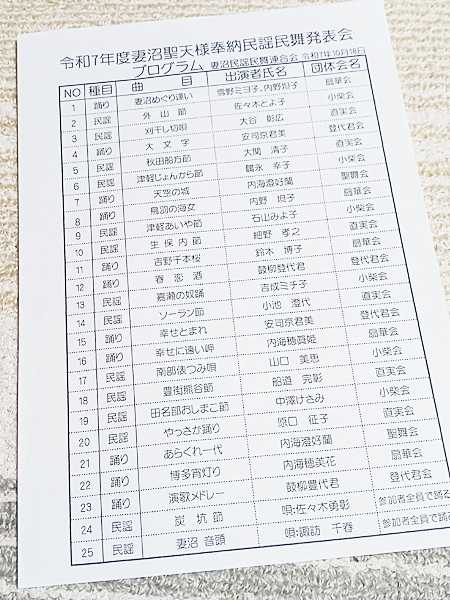 令和7年度妻沼聖天様奉納民謡民舞発表会
プログラム 妻沼民謡民舞連合会 令和7年10月18日
NO 種目 曲目 出演者氏名 団体会名
1 踊り 妻沼めぐり逢い 雪野ミヨ子、内野坦子 扇華会
2 民謡 外山節 佐々木とよ子 小柴会
3 民謡 刈干し切唄 大谷 彰広 直実会
4 踊り 大文字 安司京君美 登代君会
5 民謡 秋田船方節 大関 清子 直実会
6 民謡 津軽じょんから節 鶴永 幸子 小柴会
7 踊り 天空の城 内海澄好蘭 聖舞会
8 踊り 鳥羽の海女 内野 坦子 扇華会
9 民謡 津軽あいや節 石山みよ子 小柴会
10 民謡 生保内節 細野 孝之 直実会
11 踊り 吉野千本桜 鈴木 博子 扇華会
12 踊り 春恋酒 鼓柳登代君 登代君会
13 民謡 嘉瀬の奴踊 吉成ミチ子 小柴会
14 民謡 ソーラン節 小池 澄代 直実会
15 踊り 幸せとまれ 安司京君美 登代君会
16 踊り 幸せに遠い岬 内海穂眞姫 扇華会
17 民謡 南部俵つみ唄 山口 美恵 小柴会
18 民謡 豊街熊谷節 船道 完彰 直実会
19 民謡 田名部おしまこ節 中澤けさみ 小柴会
20 民謡 やっさか踊り 原口 征子 直実会
21 踊り あらくれ一代 内海澄好蘭 聖舞会
22 踊り 博多宵灯り 内海穂美花 扇華会
23 踊り 演歌メドレー 鼓柳豊代君 登代君会
24 民謡 炭坑節 唄:佐々木勇彰 参加者全員で踊る
25 民謡 妻沼音頭 唄:諏訪 千春 参加者全員で踊